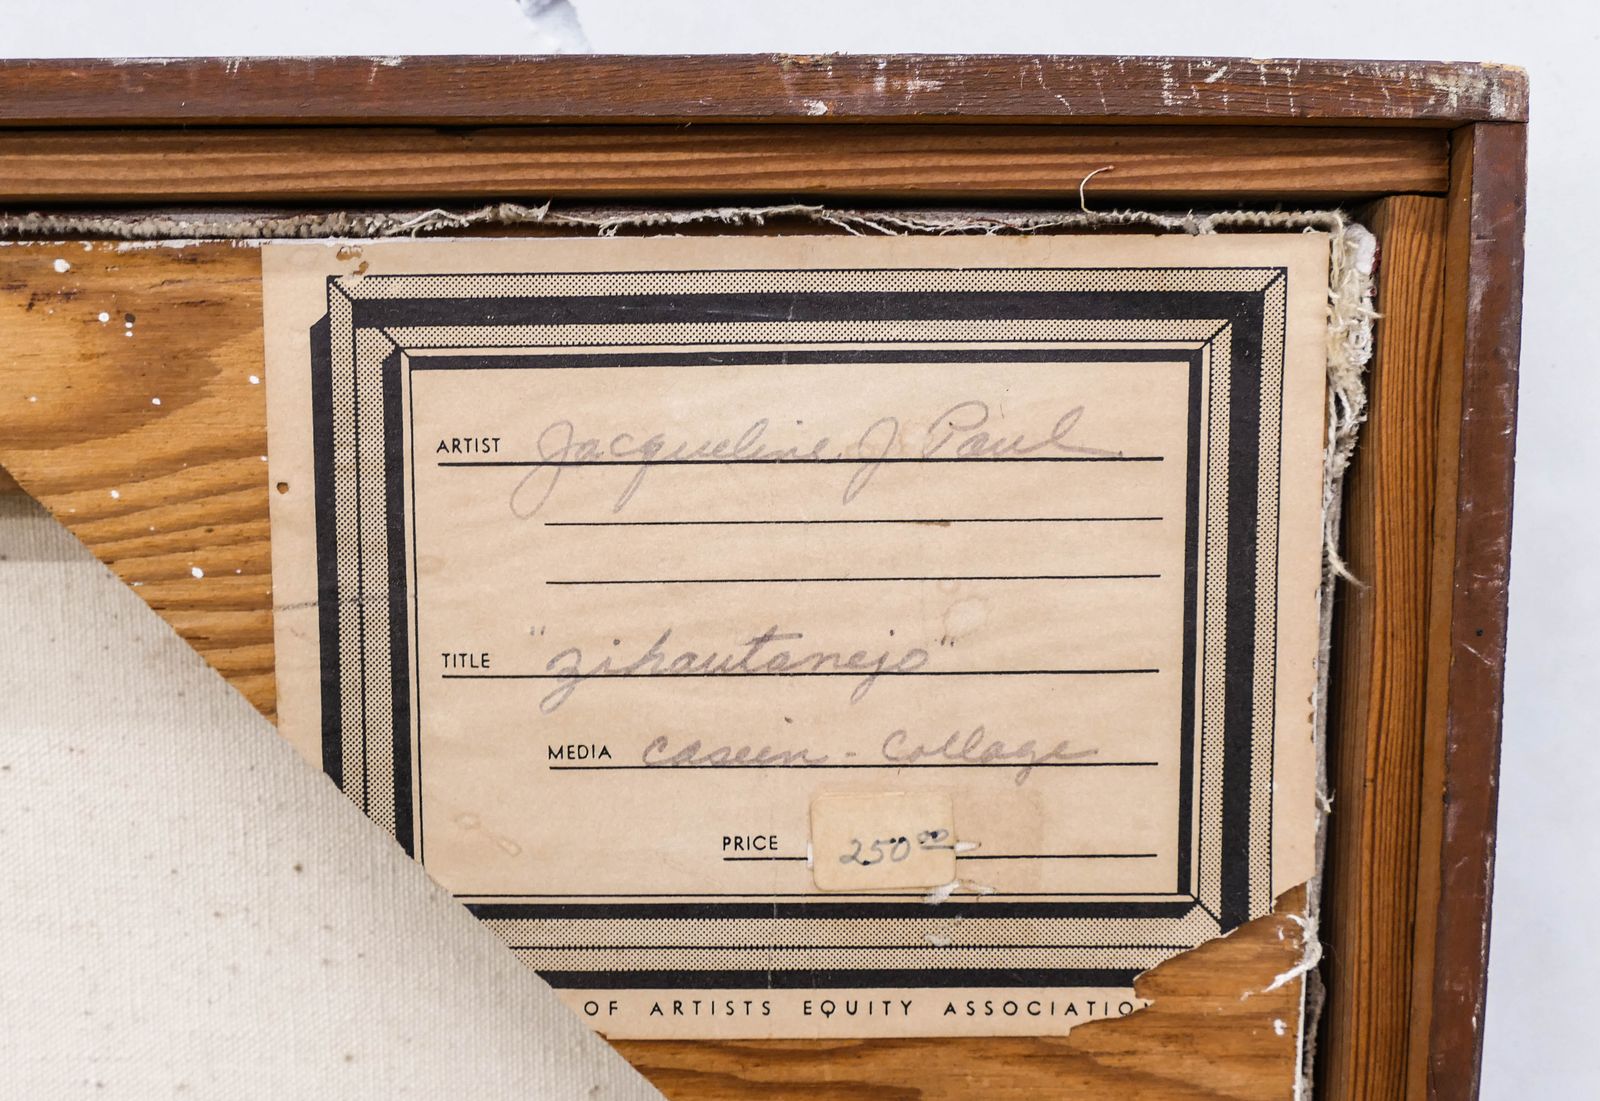 ARTIST Jacqueline J Paul
TITLE "zihautanejo"
MEDIA casein - collage
PRICE 250 00
OF ARTISTS EQUITY ASSOCIATION